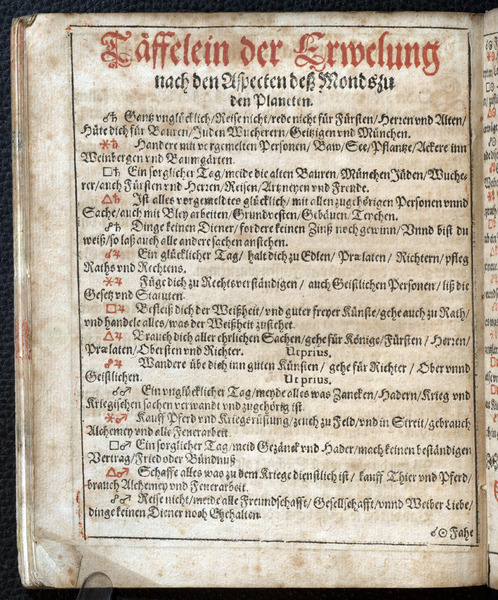 Täffelein der Erwelung
nach den Aspecten deß Monds zu
den Planeten.
☌♄ Gantz vnglücklich/Reise nicht/rede nicht für Fürsten/Herren vnd Alten/
Hüte dich für Bauren/Juden Wucherern/Geitzigen vnd München.
⚹♄ Handere mit vorgemelten Personen/Baw/See/Pflantze/Ackere inn
Weinbergen vnd Baumgärten.
□♄ Ein sorglicher Tag/meide die alten Bauren/München Jüden/Wuche-
rer/auch Fürsten vnd Herzen/Reisen/Artzneyen vnd Freude.
△♄ Ist alles vorgemeltes glücklich/mit allen zugehörigen Personen vnnd
Sache/auch mit Bley arbeiten/Grundvesten/Gebäuen/Teychen.
☍♄ Dinge keinen Diener/fordere keinen Zinß noch gewinn/Vnnd bist du
weiß/so laß auch alle andere sachen anstehen.
☌♃ Ein glücklicher Tag/halt dich zu Edlen/Prælaten/Richtern/pfleg
Raths vnd Rechtens.
⚹♃ Füge dich zu Rechtsverständigen/auch Geistlichen Personen/liß die
Gesetz vnd Statuten.
□♃ Befleiß dich der Weißheit/vnd guter freyer Künste/gehe auch zu Rath/
vnd handele alles/was der Weißheit zustehet.
△♃ Brauch dich aller ehrlichen Sachen/gehe für Könige/Fürsten/Herzen/
Prælaten/Obersten vnd Richter. Ut prius.
☍♃ Wandere übe dich inn guten Künsten/gehe für Richter/Ober vnnd
Geistlichen. Ut prius.
☌♂ Ein vnglücklicher Tag/meyde alles was Zancken/Hadern/Krieg vnd
Kriegischen sachen verwandt vnd zugehörig ist.
⚹♂ Kauff Pferd vnd Kriegsrüstung/zeuch zu Feld/vnd in Streit/gebrauch
Alchemey vnd alle Feuerarbeit.
□♂ Ein sorglicher Tag/meid Gezänck vnd Hader/mach keinen beständigen
Vertrag/Fried oder Bündnuß.
△♂ Schaffe alles was zu dem Kriege dienstlich ist/kauff Thier vnd Pferd/
brauch Alchemey vnd Feuerarbeit.
☍♂ Reise nicht/meide alle Freundschafft/Gesellschafft/vnnd Weiber Liebe/
dinge keinen Diener noch Ehehalten.
☌☉ Fahe